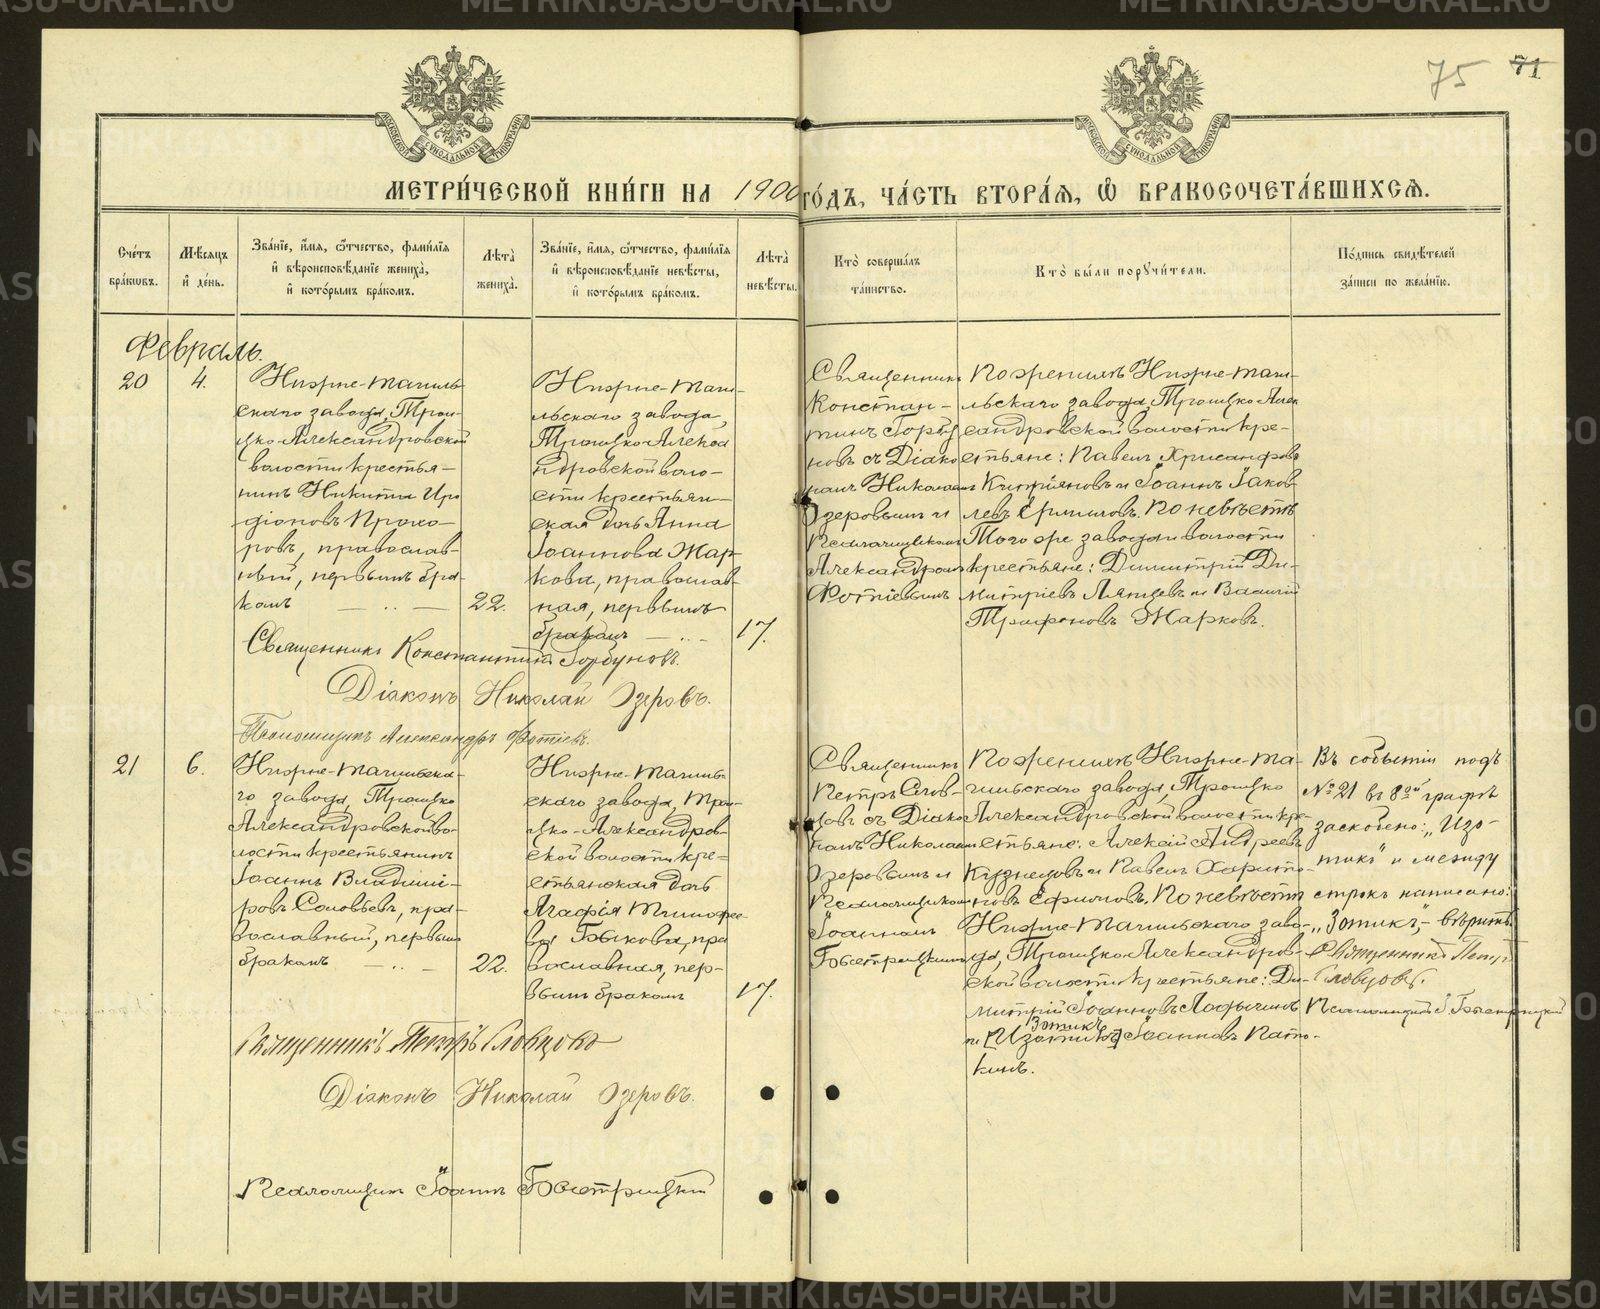 75 71
МОСКОВСКОЙ СѴНОДАЛЬНОЙ ТИПОГРАФІИ
МОСКОВСКОЙ СѴНОДАЛЬНОЙ ТИПОГРАФІИ
МЕТРИ́ЧЕСКОЙ КНИ́ГИ НА 1900 ГО́ДЪ, ЧА́СТЬ ВТОРА́Я, Ѽ БРАКОСОЧЕТА́ВШИХСѦ.
Сче́тъ
бра́кѡвъ.
Мѣ́сѧцъ
и҆ де́нь.
Зва́нїе, и҆́мѧ, ѻ҆́тчество, фами́лїѧ
и҆ вѣроисповѣ́данїе жениха̀,
и҆ кото́рымъ бра́комъ.
Лѣ́та̀
жениха̀.
Зва́нїе, и҆́мѧ, ѻ҆́тчество, фами́лїѧ
и҆ вѣроисповѣ́данїе невѣ́сты,
и҆ кото́рымъ бра́комъ.
Лѣ́та̀
невѣ́сты.
Кто̀ соверша́лъ
та́инство.
Кто̀ бы́ли порꙋчи́тели.
По́дпись свидѣ́телей
за́писи по жела́нїю.
Февраль.
20
4.
Нижне-Тагиль-
скаго завода, Трои-
цко-Александровской
волости крестья-
нинъ Никита Иро-
діоновъ Прохо-
ровъ, православ-
ный, первымъ бра-
комъ — .. —
22.
Нижне-Таги-
льскаго завода,
Троицко-Алекса
ндровской воло-
сти крестьян-
ская дочь Анна
Іоаннова Жар-
кова, православ-
ная, первымъ
бракомъ — .. -
17.
Священникъ
Констан-
тинъ Горбу
новъ съ Діако
номъ Николаемъ
Озеровымъ и
Псаломщикомъ
Александромъ
Фотіевымъ
По женихѣ Нижне-Таги-
льскаго завода, Троицко Алек
сандровской волости кре-
стьяне: Павелъ Хрисанфовъ
Кипріяновъ и Іоаннъ Іаков-
левъ Ермиловъ. По невѣстѣ
Того же завода и волости
крестьяне: Димитрій Ди-
митріевъ Ляпцевъ и Василій
Трифоновъ Жарковъ.
Священникъ Константинъ Горбуновъ.
Діаконъ Николай Озеровъ.
Псаломщикъ Александръ Фотіевъ.
21
6.
Нижне-Тагильска-
го завода, Троицко
Александровской во-
лости крестьянинъ
Іоаннъ Владимі-
ровъ Соловьевъ, пра-
вославный, первымъ
бракомъ — .. -
22.
Нижне-Тагиль-
скаго завода, Трои-
цко-Александров-
ской волости кре-
стьянская дочь
Агафія Тимофее-
ва Быкова, пра
вославная, пер-
вымъ бракомъ
17.
Священникъ
Петръ Слов-
цовъ съ Діако
номъ Николаемъ
Озеровымъ и
Псаломщикомъ
Іоанномъ
Быстрицкимъ
По женихѣ Нижне-Та-
гильскаго завода, Троицко
Александровской волости кре-
стьяне: Алексій Андреевъ
Кузнецовъ и Павелъ Харито-
новъ Ефимовъ. По невѣстѣ
Нижне-Тагильскаго заво-
да, Троицко Александров-
ской волости крестьяне: Ди-
митрій Іоанновъ Ладычинъ
Зотикъ
и [Изотикъ] Іоанновъ Пато-
кинъ.
Въ событіи подъ
№ 21 въ 8ой графѣ
заскоблено: „Изо-
тикъ" и между
строкъ написано:
„Зотикъ," - вѣрить
Священникъ Петръ
Словцовъ.
Псаломщикъ І. Быстрицкій
Священникъ Петръ Словцовъ
Діаконъ Николай Озеровъ.
Псаломщикъ Іоаннъ Быстрицкій